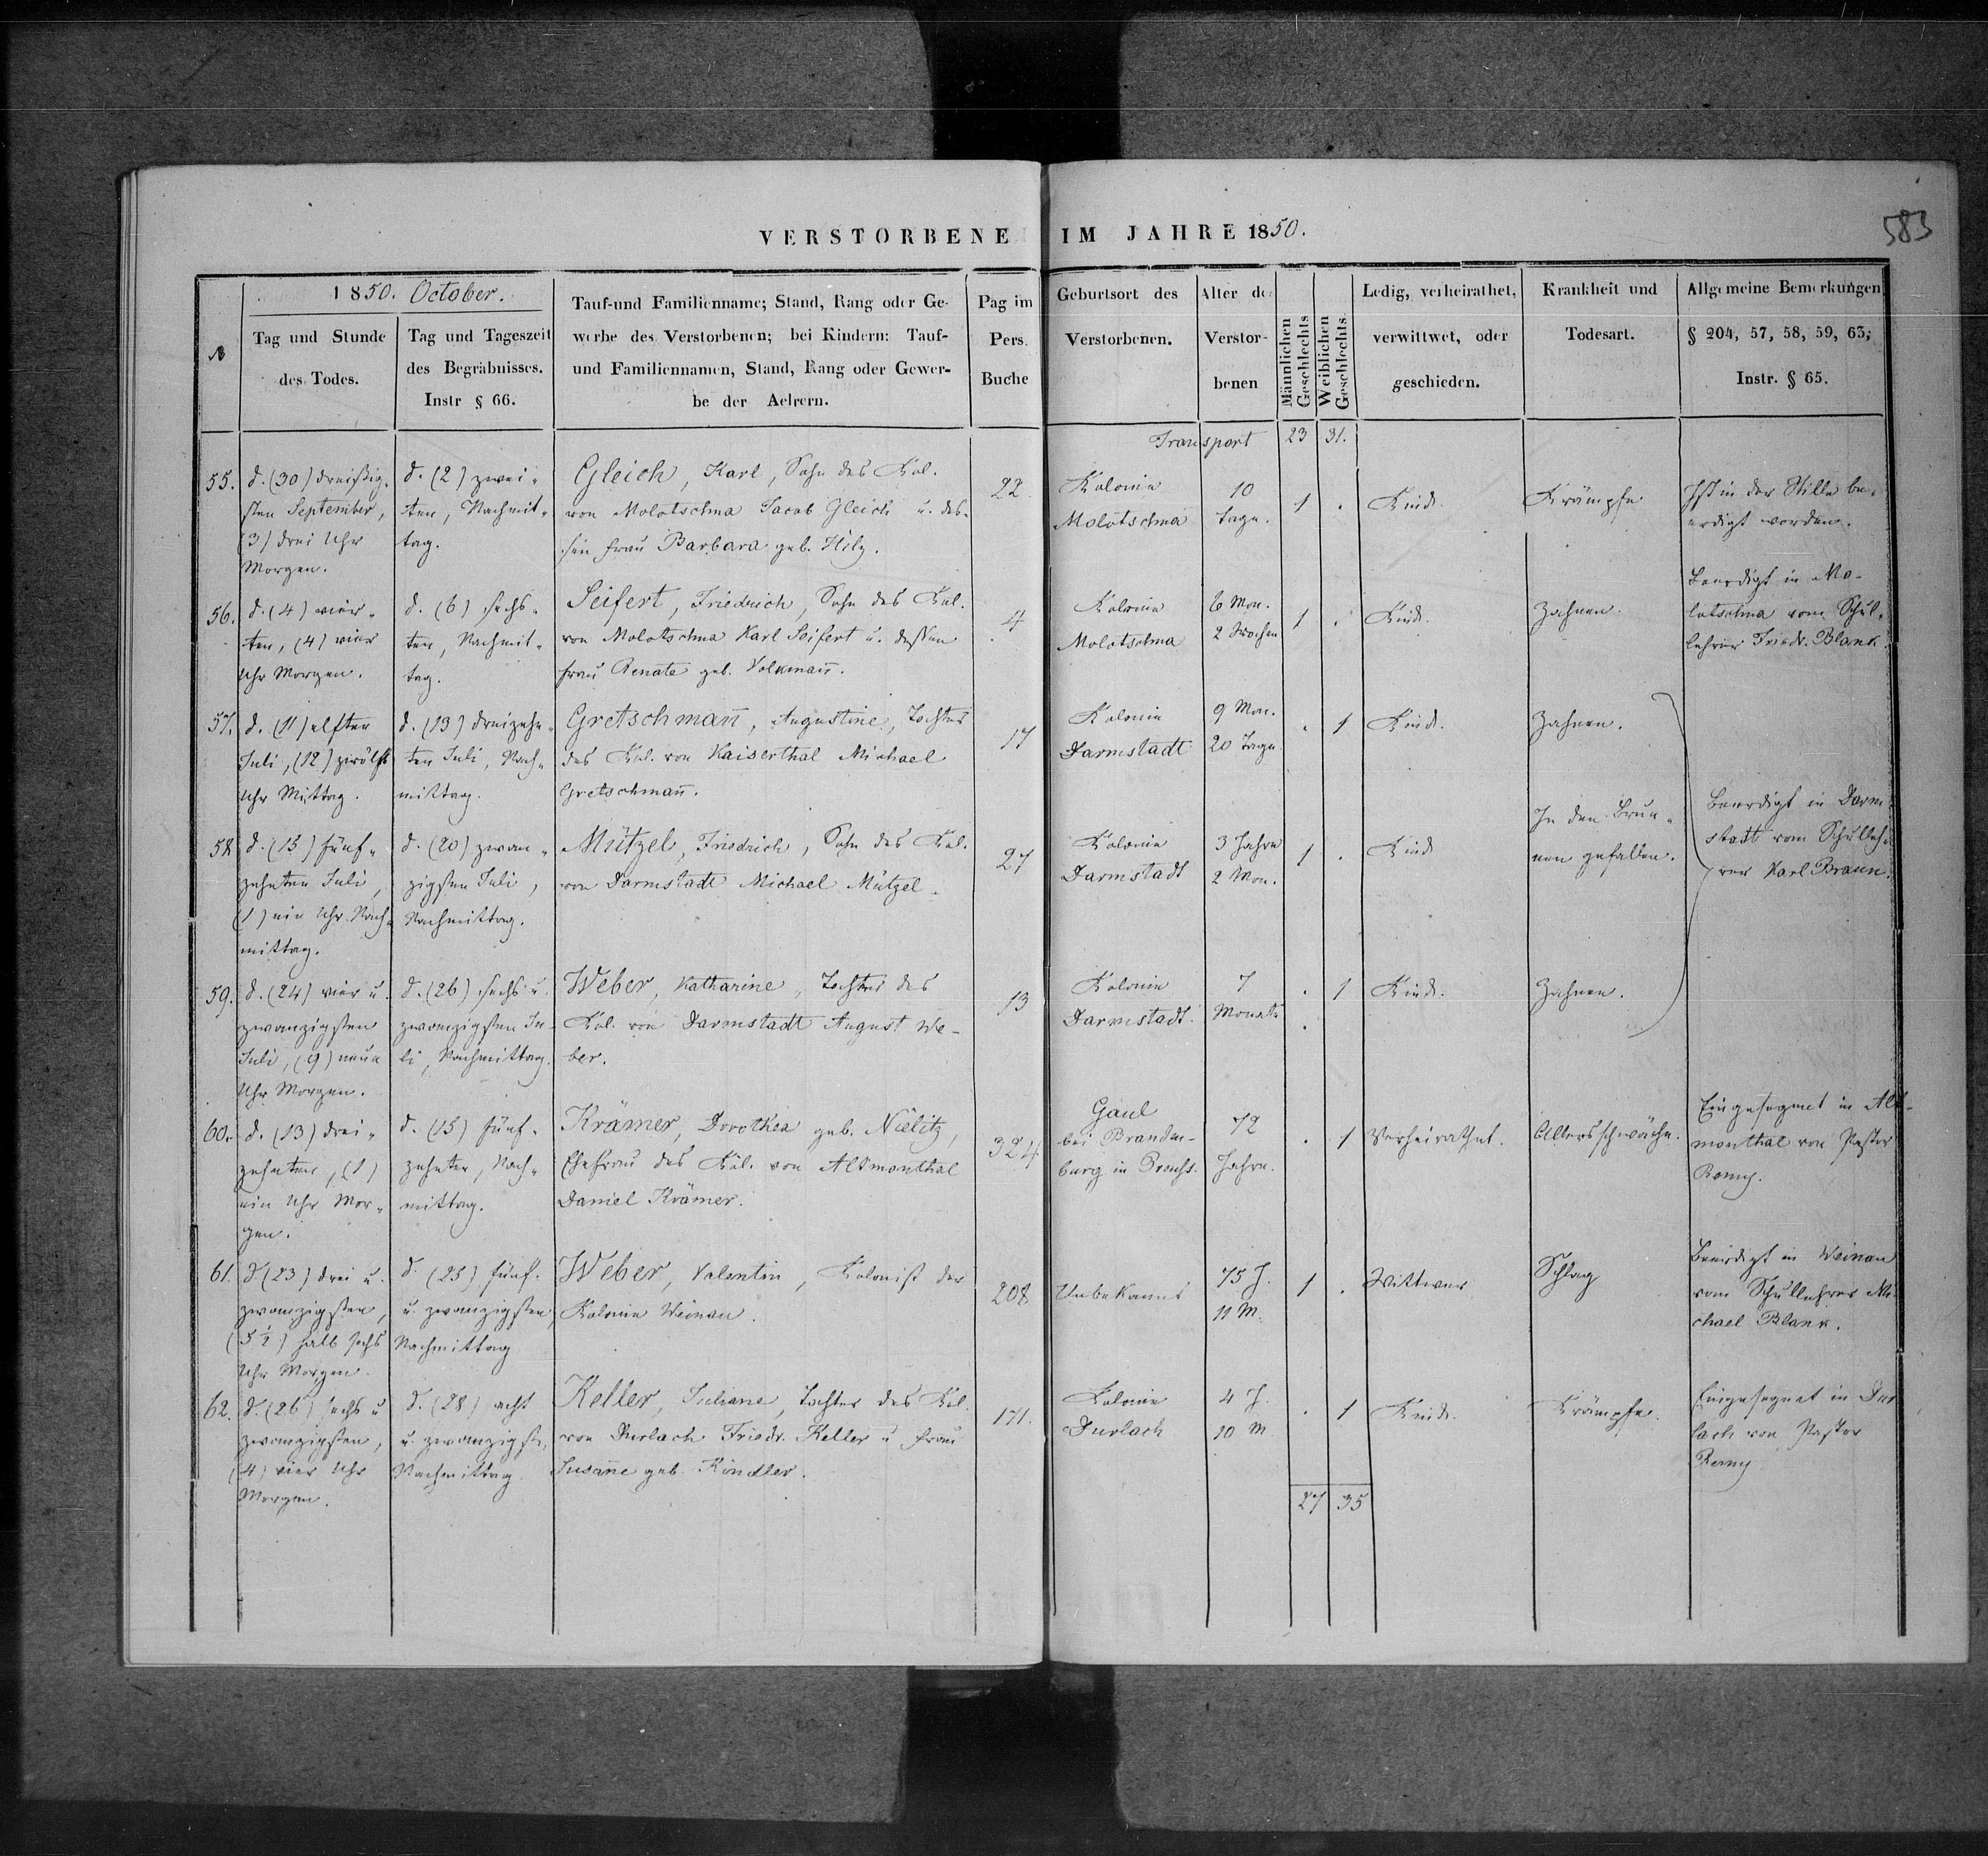 VERSTORBENE IM JAHRE 1850.
583
1850. October.
№
Tag und Stunde
des Todes.
Tag und Tageszeit
des Begräbnisses.
Instr § 66.
Tauf-und Familienname; Stand, Rang oder Ge-
werbe des Verstorbenen; bei Kindern: Tauf-
und Familiennamen, Stand, Rang oder Gewer-
be der Aelrern.
Pag im
Pers.
Buche
Geburtsort des
Verstorbenen.
Alter de
Verstor-
benen
Männlichen
Geschlechts
Weiblichen
Geschlechts
Ledig, verheirathet,
verwittwet, oder
geschieden.
Krankheit und
Todesart.
Allgemeine Bemerkungen
§ 204, 57, 58, 59, 63,
Instr. § 65.
Transport 23 31.
55.
d. (30) dreißig-
sten September,
(3) drei Uhr
Morgen.
d. (2) zwei-
ten, Nachmit-
tag.
Gleich, Karl, Sohn des Kol.
von Molotschna Jacob Gleich u. des-
sen Frau Barbara geb. Hilz.
22.
Kolonie
Molotschna
10
Tage.
1 .
Kind.
Krämpfe
Ist in der Stille be-
erdigt worden.
56.
d. (4) vier-
ten, (4) vier
Uhr Morgen.
d. (6) sechs-
ten, Nachmit-
tag.
Seifert, Friedrich, Sohn des Kol.
von Molotschna Karl Seifert u. dessen
Frau Renate geb. Volkmañ.
4
Kolonie
Molotschna
6 Mon.
2 Wochen
1 .
Kind.
Zahnen.
Beerdigt in Mo-
lotschna vom Schul-
lehrer Friedr. Blank.
57.
d. (11) elften
Juli, (12) zwölf
Uhr Mittag.
d. (13) dreizehn-
ten Juli, Nach-
mittag.
Gretschmañ, Augustine, Tochter
des Kol. von Kaiserthal Michael
Gretschmañ.
17
Kolonie
Darmstadt
9 Mon.
20 Tage.
. 1
Kind.
Zahnen.
58
d. (15) fünf-
zehnten Juli,
(1) ein Uhr Nach-
mittag.
d. (20) zwan-
zigsten Juli,
Nachmittag.
Mützel, Friedrich, Sohn des Kol.
von Darmstadt Michael Mützel.
27
Kolonie
Darmstadt
3 Jahre
2 Mon.
1 .
Kind
In den Brun-
nen gefallen.
Beerdigt in Darm-
stadt vom Schulleh-
rer Karl Braun.
59.
d. (24) vier u.
zwanzigsten
Juli, (9) neun
Uhr Morgen.
d. (26) sechs u.
zwanzigsten Ju-
li, Nachmittag.
Weber, Katharine, Tochter des
Kol. von Darmstadt August We-
ber.
13
Kolonie
Darmstadt.
7
Monate
. 1
Kind.
Zahnen.
60.
d. (13) drei-
zehnten, (1)
ein Uhr Mor-
gen.
d. (15) fünf-
zehnten, Nach-
mittag.
Krämer, Dorothea geb. Nielitz,
Ehefrau des Kol. von Altmonthal
Daniel Krämer.
324
Gaul
bei Branden-
burg in Preuss.
72
Jahre.
. 1
Verheirathet.
Altersschwäche.
Eingesegnet in Alt-
monthal von Pastor
61.
d. (23) drei u.
zwanzigsten,
(5½) halb sechs
Uhr Morgen.
d. (25) fünf-
u. zwanzigsten,
Nachmittag
Weber, Valentin, Kolonist der
Kolonie Weinau.
208
Unbekannt
75 J.
11 M.
1 .
Wittwer
Schlag
Beerdigt in Weinau
vom Schullehrer Mi-
chael Blank.
62.
d. (26) sechs u
zwanzigsten,
(4) vier Uhr
Morgen.
d. (28) acht
u. zwanzigst.,
Nachmittag.
Keller, Juliane, Tochter des Kol.
von Durlach Friedr. Keller u Frau
Susañe geb. Kindler.
171.
Kolonie
Durlach
4 J.
10 M
. 1
Kind.
Krämpfe.
Eingesegnet in Dur
lach von Pastor
27 35